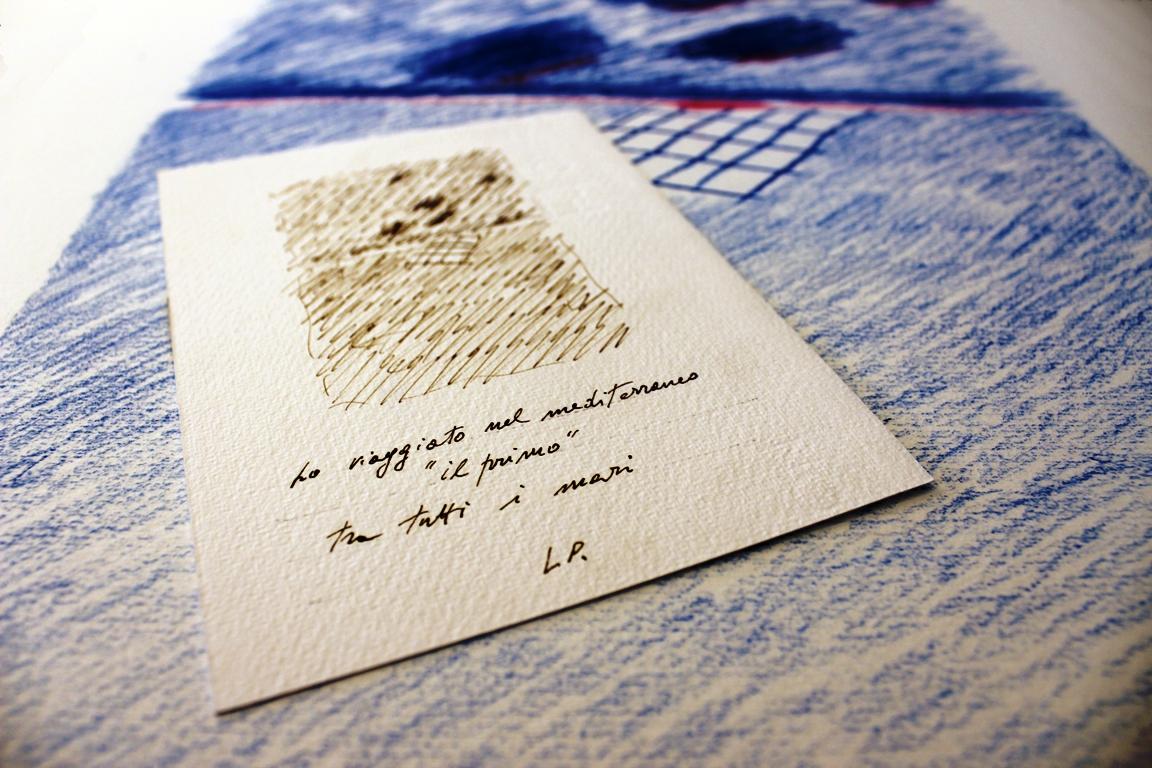 ho viaggiato nel mediterraneo
"il primo"
tra tutti i mari
L.P.